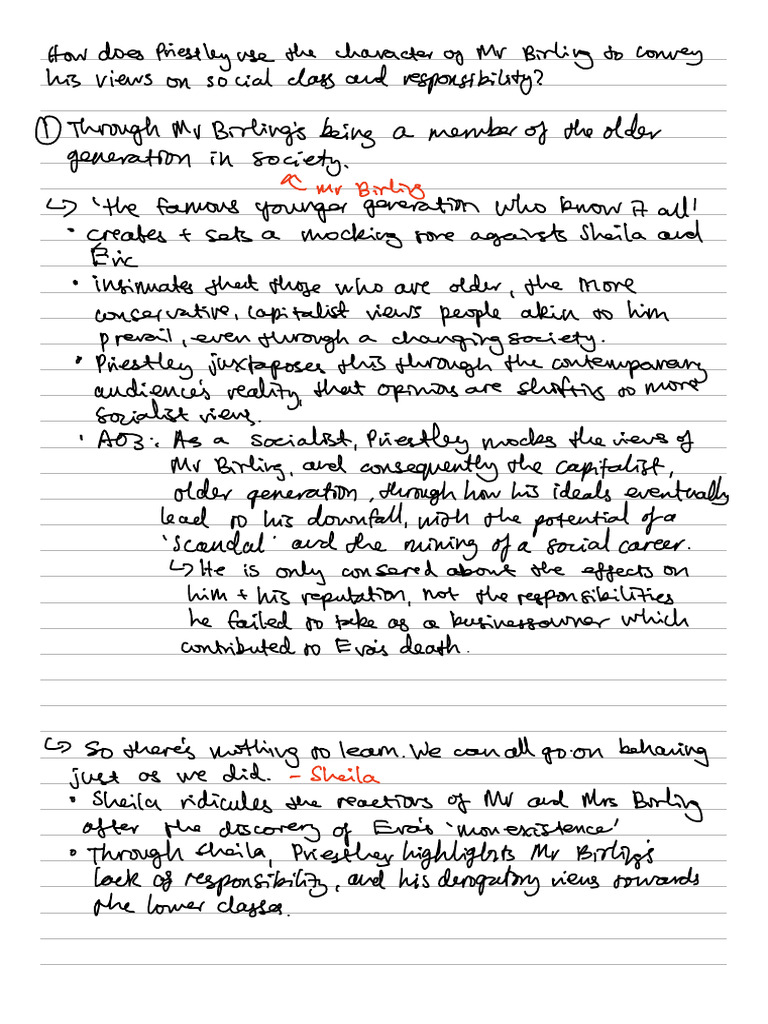 How does Priestley use the character of Mr Birling to convey
his views on social class and responsibility?
① Through Mr Birling's being a member of the older
generation in society.
↖ Mr Birling
↳ 'the famous younger generation who know it all'
• creates + sets a mocking tone againsts Sheila and
Eric
• insinuates that those who are older, the more
conservative, capitalist views people akin to him
prevail, even through a changing society.
• Priestley juxtaposes this through the contemporary
audience's reality, that opinions are shifting to more
socialist views.
• AO3: As a socialist, Priestley mocks the views of
Mr Birling, and consequently the capitalist,
older generation, through how his ideals eventually
lead to his downfall, with the potential of a
'scandal' and the ruining of a social career.
↳ He is only consered about the effects on
him + his reputation, not the responsibilities
he failed to take as a businessowner which
contributed to Eva's death.
↳ So there's nothing to learn. We can all go on behaving
just as we did. - Sheila
• Sheila ridicules the reactions of Mr and Mrs Birling
after the discovery of Eva's 'nonexistence'
• Through Sheila, Priestley highlights Mr Birling's
lack of responsibility, and his derogatory views towards
the lower classes.